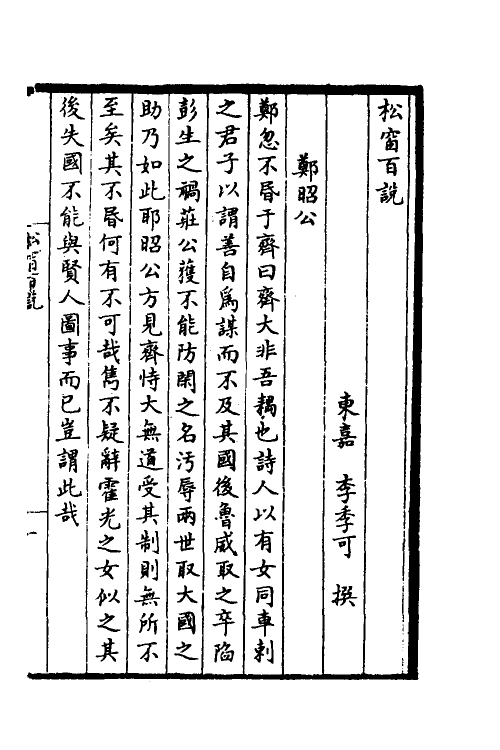 松窗百說
東嘉　李季可　撰
鄭昭公
鄭忽不昏于齊曰齊大非吾耦也詩人以有女同車刺
之君子以謂善自爲謀而不及其國後魯威取之卒陷
彭生之禍莊公獲不能防閑之名汚辱兩世取大國之
助乃如此耶昭公方見齊恃大無道受其制則無所不
至矣其不昏何有不可哉雋不疑辭霍光之女似之其
後失國不能與賢人圖事而已豈謂此哉
松窗百說
一